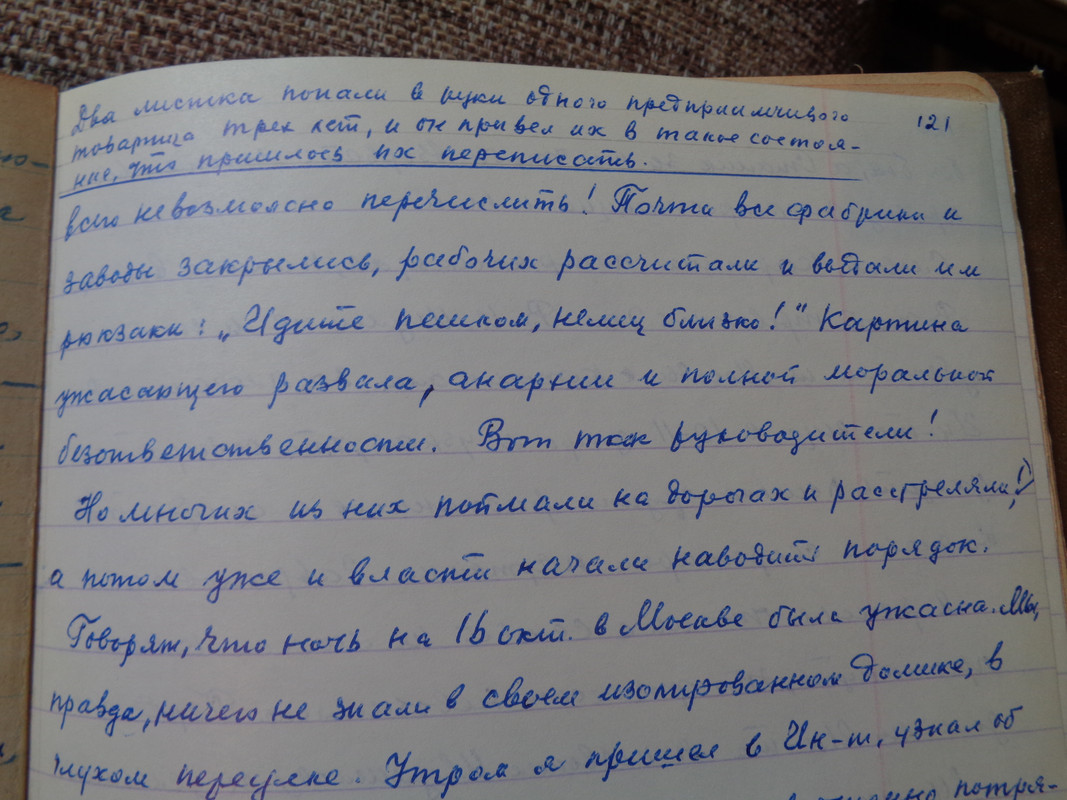 Два листка попали в руки одного предприимчивого
121
товарища трех лет, и он привел их в такое состоя-
ние, что пришлось их переписать.
всего невозможно перечислить! Почти все фабрики и
заводы закрылись, рабочих рассчитали и выдали им
рюкзаки: „Идите пешком, немец близко!" Картина
ужасающего развала, анархии и полной моральной
безответственности. Вот так руководители!
Но многих из них поймали на дорогах и расстреляли(!)
а потом уже и власти начали наводить порядок.
Говорят, что ночь на 16 окт. в Москве была ужасна. Мы,
правда, ничего не знали в своем изолированном домике, в
глухом переулке. Утром я пришел в Ин-т, узнал об
потря-